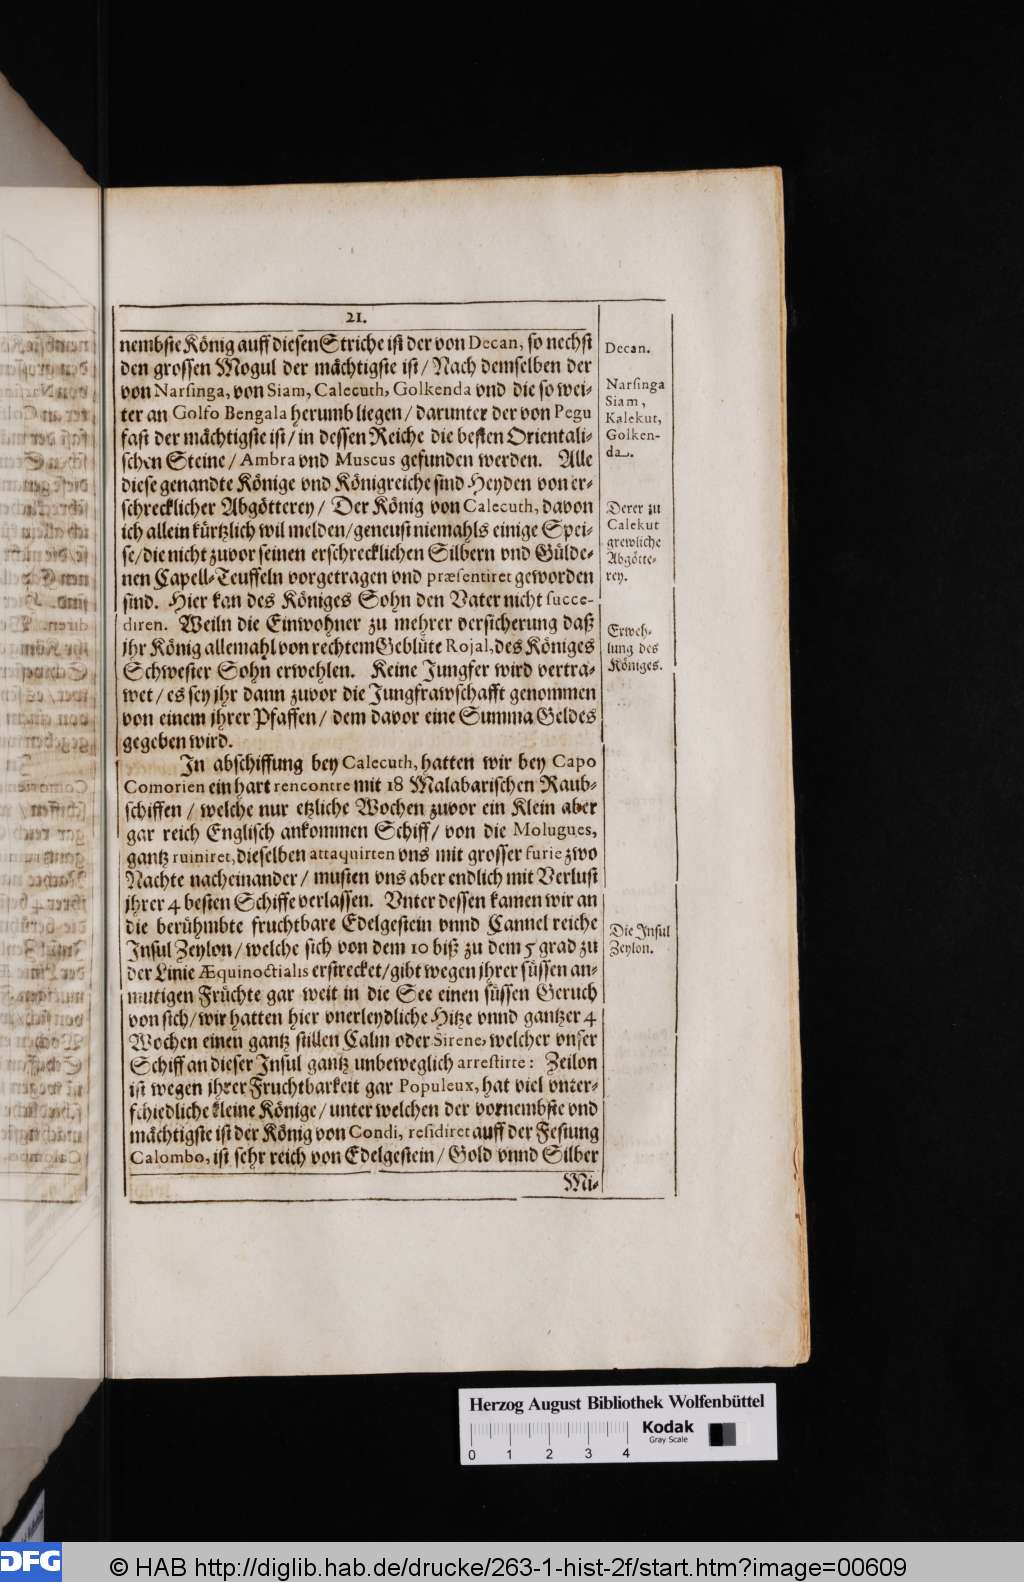 21.
nembste König auff diesen Striche ist der von Decan, so nechst
den grossen Mogul der mächtigste ist / Nach demselben der
von Narsinga, von Siam, Calecuth, Golkenda vnd die so wei-
ter an Golfo Bengala herumb liegen / darunter der von Pegu
fast der mächtigste ist / in dessen Reiche die besten Orientali-
schen Steine / Ambra vnd Muscus gefunden werden. Alle
diese genandte Könige vnd Königreiche sind Heyden von er-
schrecklicher Abgötterey / Der König von Calecuth, davon
ich allein kürtzlich wil melden / geneust niemahls einige Spei-
se / die nicht zuvor seinen erschrecklichen Silbern vnd Gülde-
nen Capell-Teuffeln vorgetragen vnd præsentiret geworden
sind. Hier kan des Königes Sohn den Vater nicht succe-
diren. Weiln die Einwohner zu mehrer versicherung daß
jhr König allemahl von rechtem Geblüte Rojal, des Königes
Schwester Sohn erwehlen. Keine Jungfer wird vertra-
wet / es sey jhr dann zuvor die Jungfrawschafft genommen
von einem jhrer Pfaffen / dem davor eine Summa Geldes
gegeben wird.
In abschiffung bey Calecuth, hatten wir bey Capo
Comorien ein hart rencontre mit 18 Malabarischen Raub-
schiffen / welche nur etzliche Wochen zuvor ein Klein aber
gar reich Englisch ankommen Schiff / von die Molugues,
gantz ruiniret, dieselben attaquirten vns mit grosser furie zwo
Nachte nacheinander / musten vns aber endlich mit Verlust
jhrer 4 besten Schiffe verlassen. Vnter dessen kamen wir an
die berühmbte fruchtbare Edelgestein vnnd Cannel reiche
Insul Zeylon / welche sich von dem 10 biß zu dem 5 grad zu
der Linie Æquinoctialis erstrecket / gibt wegen jhrer süssen an-
mutigen Früchte gar weit in die See einen süssen Geruch
von sich / wir hatten hier vnerleydliche Hitze vnnd gantzer 4
Wochen einen gantz stillen Calm oder Sirene, welcher vnser
Schiff an dieser Insul gantz unbeweglich arrestirte: Zeilon
ist wegen jhrer Fruchtbarkeit gar Populeux, hat viel vnter-
schiedliche kleine Könige / unter welchen der vornembste vnd
mächtigste ist der König von Condi, residiret auff der Festung
Calombo, ist sehr reich von Edelgestein / Gold vnnd Silber
Mi-
Decan.
Narsinga
Siam,
Kalekut,
Golken-
da.
Derer zu
Calekut
grewliche
Abgötte-
rey.
Erweh-
lung des
Königes.
Die Insul
Zeylon.
Herzog August Bibliothek Wolfenbüttel
Kodak
Gray Scale
0 1 2 3 4
DFG
© HAB http://diglib.hab.de/drucke/263-1-hist-2f/start.htm?image=00609